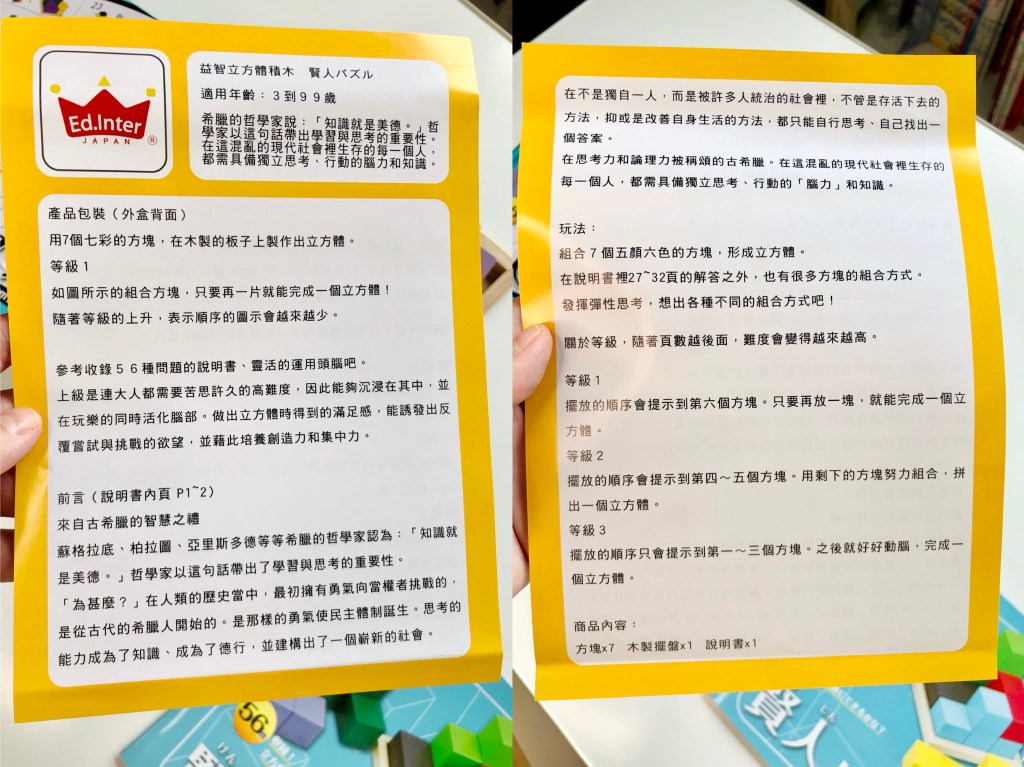 Ed.Inter
JAPAN
®
益智立方體積木　賢人パズル
適用年齡：３到９９歲
希臘的哲學家說：「知識就是美德。」哲
學家以這句話帶出學習與思考的重要性。
在這混亂的現代社會裡生存的每一個人，
都需具備獨立思考、行動的腦力和知識。
產品包裝（外盒背面）
用7個七彩的方塊，在木製的板子上製作出立方體。
等級１
如圖所示的組合方塊，只要再一片就能完成一個立方體！
隨著等級的上升，表示順序的圖示會越來越少。
參考收錄５６種問題的說明書、靈活的運用頭腦吧。
上級是連大人都需要苦思許久的高難度，因此能夠沉浸在其中，並
在玩樂的同時活化腦部。做出立方體時得到的滿足感，能誘發出反
覆嘗試與挑戰的欲望，並藉此培養創造力和集中力。
前言（說明書內頁 P1~2）
來自古希臘的智慧之禮
蘇格拉底、柏拉圖、亞里斯多德等等希臘的哲學家認為：「知識就
是美德。」哲學家以這句話帶出了學習與思考的重要性。
「為甚麼？」在人類的歷史當中，最初擁有勇氣向當權者挑戰的，
是從古代的希臘人開始的。是那樣的勇氣使民主體制誕生。思考的
能力成為了知識、成為了德行，並建構出了一個嶄新的社會。
56
けん
在不是獨自一人，而是被許多人統治的社會裡，不管是存活下去的
方法，抑或是改善自身生活的方法，都只能自行思考、自己找出一
個答案。
在思考力和論理力被稱頌的古希臘。在這混亂的現代社會裡生存的
每一個人，都需具備獨立思考、行動的「腦力」和知識。
玩法：
組合７個五顏六色的方塊，形成立方體。
在說明書裡27~32頁的解答之外，也有很多方塊的組合方式。
發揮彈性思考，想出各種不同的組合方式吧！
關於等級，隨著頁數越後面，難度會變得越來越高。
等級１
擺放的順序會提示到第六個方塊。只要再放一塊，就能完成一個立
方體。
等級２
擺放的順序會提示到第四～五個方塊。用剩下的方塊努力組合，拼
出一個立方體。
等級３
擺放的順序只會提示到第一～三個方塊。之後就好好動腦，完成一
個立方體。
商品內容：
方塊x7　木製擺盤x1　說明書x1
じん
賢人